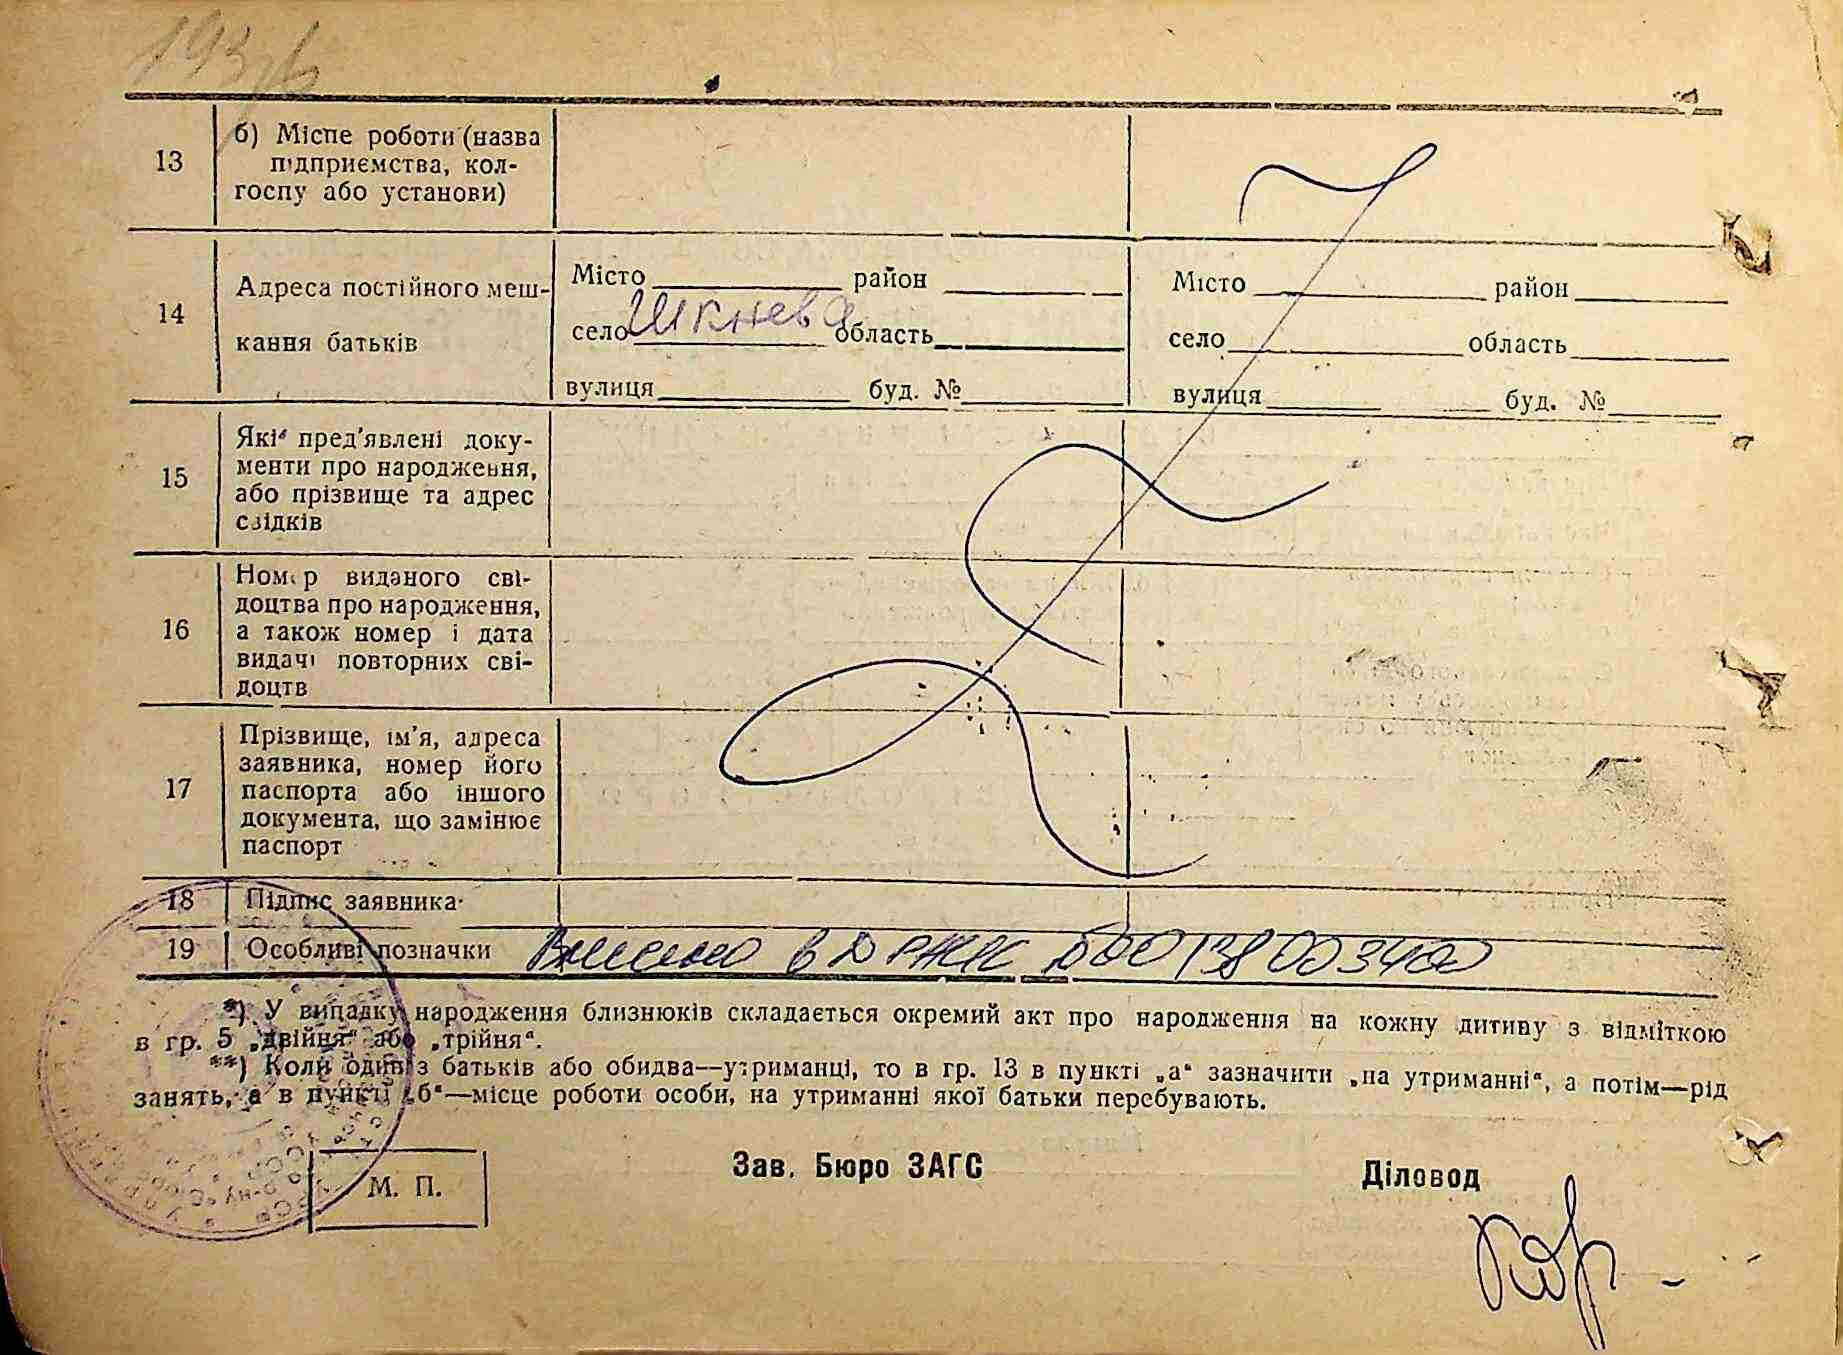 13
б) Місце роботи (назва
підприємства, кол-
госпу або установи)
14
Адреса постійного меш-
кання батьків
Місто район
село Шкнева область
вулиця буд. №
Місто район
село область
вулиця буд. №
15
Які пред'явлені доку-
менти про народження,
або прізвище та адрес
свідків
16
Номер виданого сві-
доцтва про народження,
а також номер і дата
видачі повторних сві-
доцтв
17
Прізвище, ім'я, адреса
заявника, номер його
паспорта або іншого
документа, що замінює
паспорт
18 Підпис заявника
19 Особливі позначки Внесено в ДРАЦС 00138003400
*) У випадку народження близнюків складається окремий акт про народження на кожну дитину з відміткою
в гр. 5 „двійня“ або „трійня“.
**) Коли один з батьків або обидва—утриманці, то в гр. 13 в пункті „а“ зазначити „на утриманні“, а потім—рід
занять, а в пункті „б“—місце роботи особи, на утриманні якої батьки перебувають.
М. П.
Зав. Бюро ЗАГС
Діловод